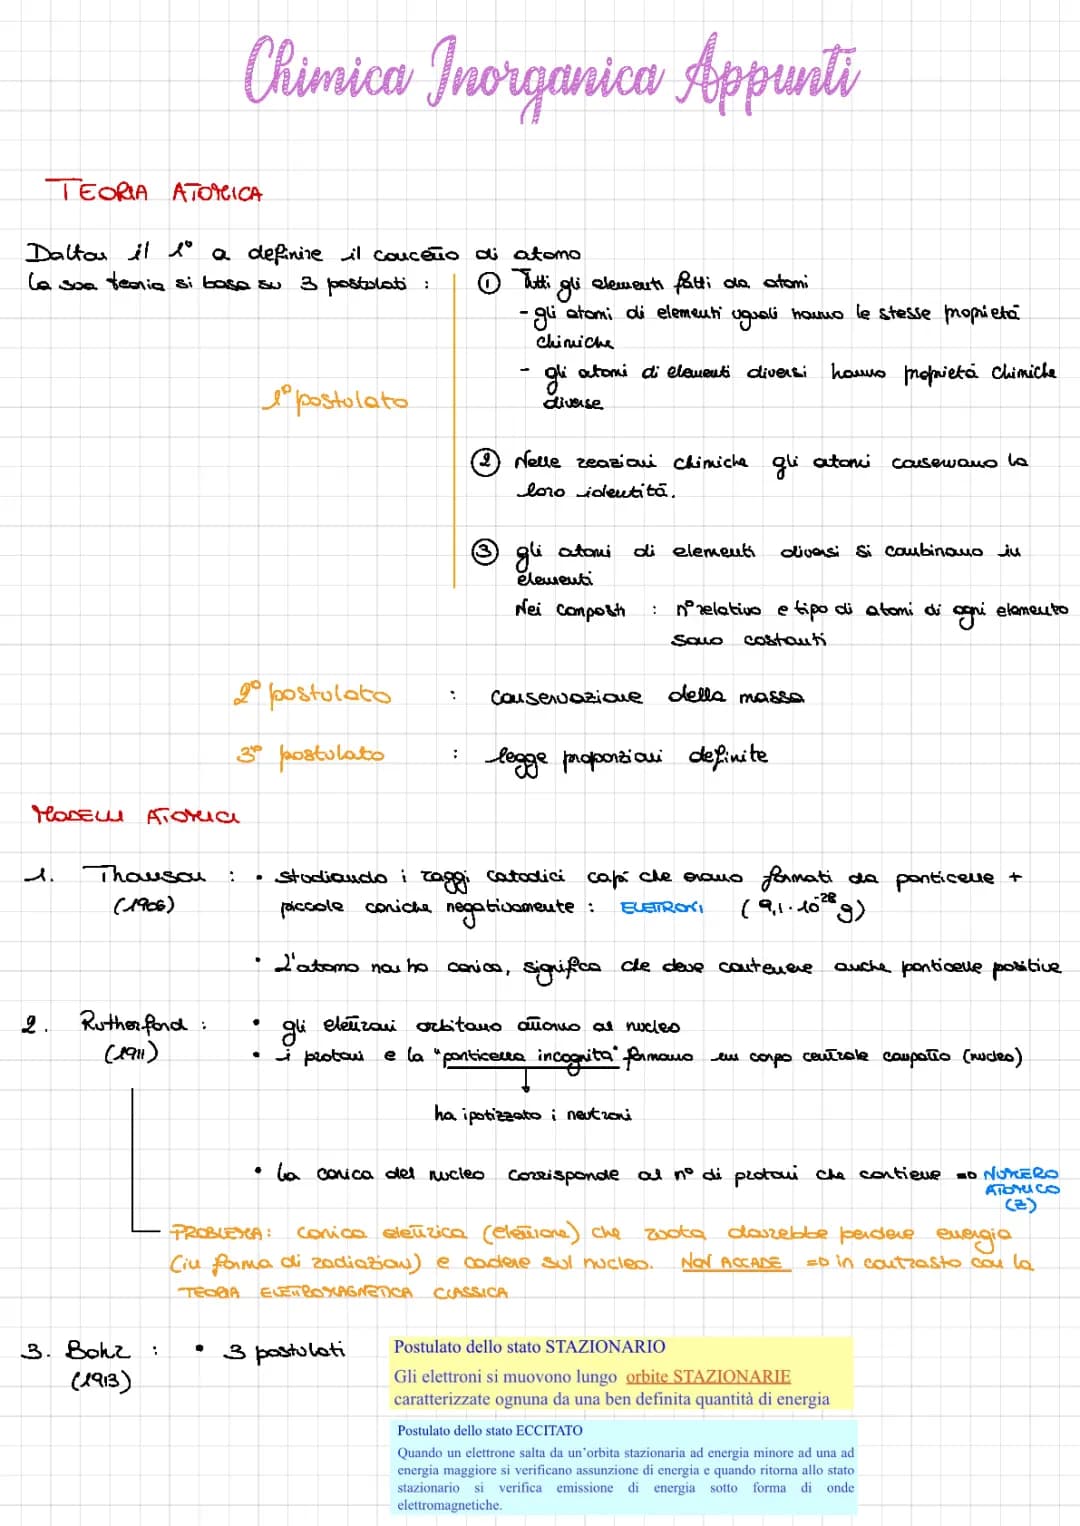 Chimica Inorganica Appunti
TEORIA ATOMICA
Dalton il 1° a definire il concetto di atomo
la sua teoria si basa su 3 postulati :
① Tutti gli elementi fatti da atomi
- gli atomi di elementi uguali hanno le stesse proprietà
chimiche
- gli atomi di elementi diversi hanno proprietà chimiche
diverse
1° postulato
② Nelle reazioni chimiche gli atomi conservano la
loro identità.
③ gli atomi di elementi diversi si combinano in
elementi
Nei composti : n° relativo e tipo di atomi di ogni elemento
sono costanti
2° postulato : conservazione della massa
3° postulato : legge proporzioni definite
MODELLI ATOMICI
1. Thomson : • studiando i raggi catodici capì che erano formati da particelle +
(1906) piccole cariche negativamente : ELETTRONI (9,1·10⁻²⁸ g)
• L'atomo non ha carica, significa che deve contenere anche particelle positive
2. Rutherford : • gli elettroni orbitano attorno al nucleo
(1911) • i protoni e la "particella incognita" formano un corpo centrale compatto (nucleo)
ha ipotizzato i neutroni
• la carica del nucleo corrisponde al n° di protoni che contiene => NUMERO
ATOMICO
(Z)
PROBLEMA: carica elettrica (elettrone) che ruota dovrebbe perdere energia
(in forma di radiazioni) e cadere sul nucleo. NON ACCADE => in contrasto con la
TEORIA ELETTROMAGNETICA CLASSICA
3. Bohr : • 3 postulati
(1913)
Postulato dello stato STAZIONARIO
Gli elettroni si muovono lungo orbite STAZIONARIE
caratterizzate ognuna da una ben definita quantità di energia
Postulato dello stato ECCITATO
Quando un elettrone salta da un'orbita stazionaria ad energia minore ad una ad
energia maggiore si verificano assunzione di energia e quando ritorna allo stato
stazionario si verifica emissione di energia sotto forma di onde
elettromagnetiche.